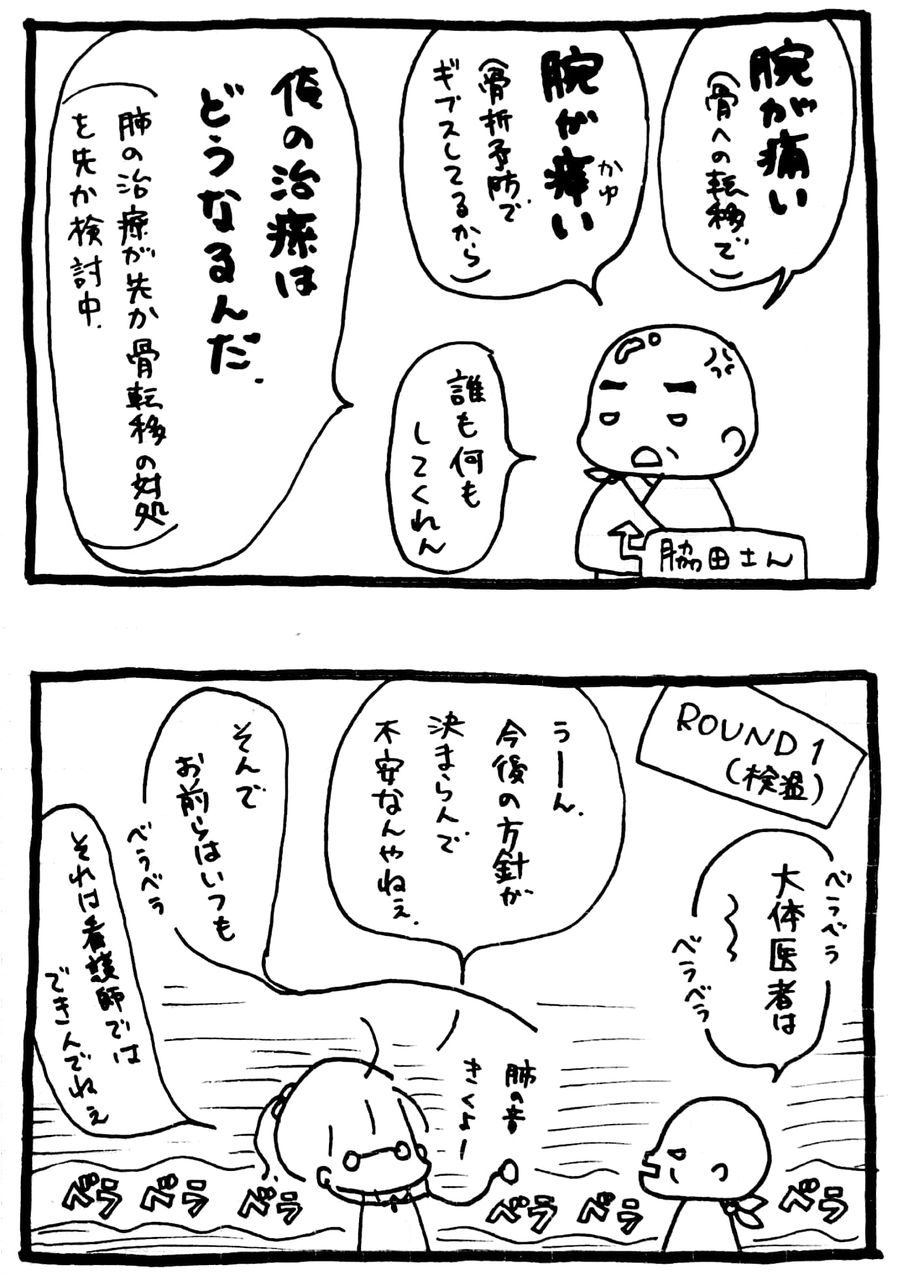 腕が痛い
(骨への転移で)
腕が痒い
かゆ
(骨折予防で
ギプスしてるから)
誰も何も
してくれん
俺の治療は
どうなるんだ.
(肺の治療が先か骨転移の対処
を先か検討中.)
脇田さん
ROUND 1
(検温)
ベラベラ
大体医者は
〜〜
ベラベラ
うーん.
今後の方針が
決まらんで
不安なんやねぇ.
そんで
お前らはいつも
ベラベラ
それは看護師では
できんでねぇ
肺の音
きくよー
ベラ ベラ ベラ ベラ ベラ ベラ